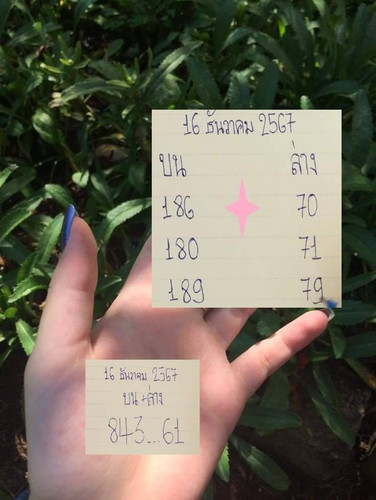 16 ธันวาคม 2567
บน ล่าง
186 70
180 71
189 79
16 ธันวาคม 2567
บน+ล่าง
843...61